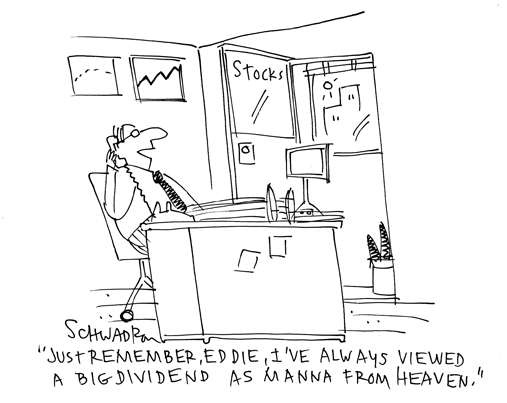 Stocks
SCHWADRON
"JUST REMEMBER, EDDIE, I'VE ALWAYS VIEWED
A BIG DIVIDEND AS MANNA FROM HEAVEN."